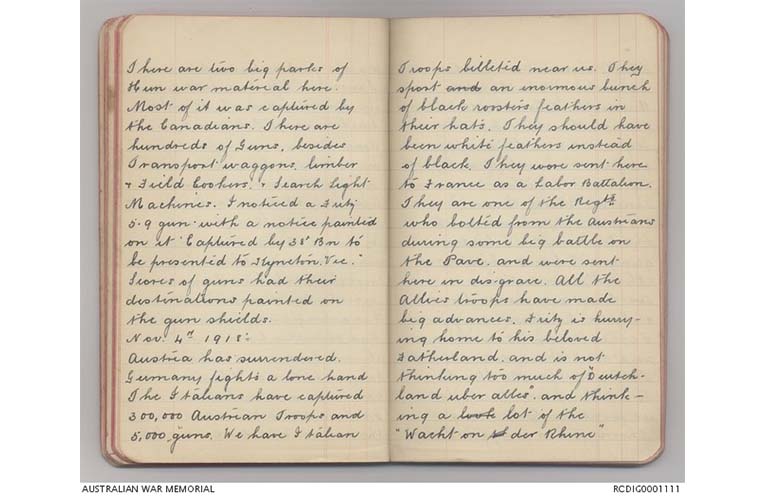 There are two big parks of
Hun war material here.
Most of it was captured by
the Canadians. There are
hundreds of Guns, besides
Transport waggons, limber
+ Field Cookers, + Search Light
Machines. I noticed a Fritz
5.9 gun with a notice painted
on it "Captured by 38th Bn to
be presented to Kyneton. Vic."
Scores of guns had their
destinations painted on
the gun shields.
Nov. 4th 1918:
Austria has surrendered.
Germany fights a lone hand
The Italians have captured
300,000 Austrian Troops and
5,000 guns. We have Italian
Troops billetid near us. They
sport and an inormous bunch
of black roosters feathers in
their hats. They should have
been white feathers instead
of black. They were sent here
to France as a Labor Battalion.
They are one of the Regts.
who bolted from the Austrians
during some big battle on
the Pave. and were sent
here in disgrace. All the
Allies troops have made
big advances. Fritz is hurry-
ing home to his beloved
Fatherland, and is not
thinking too much of "Deutch-
land uber alles" and think-
ing a look lot of the
"Wacht on der Rhine"
AUSTRALIAN WAR MEMORIAL
RCDIG0001111